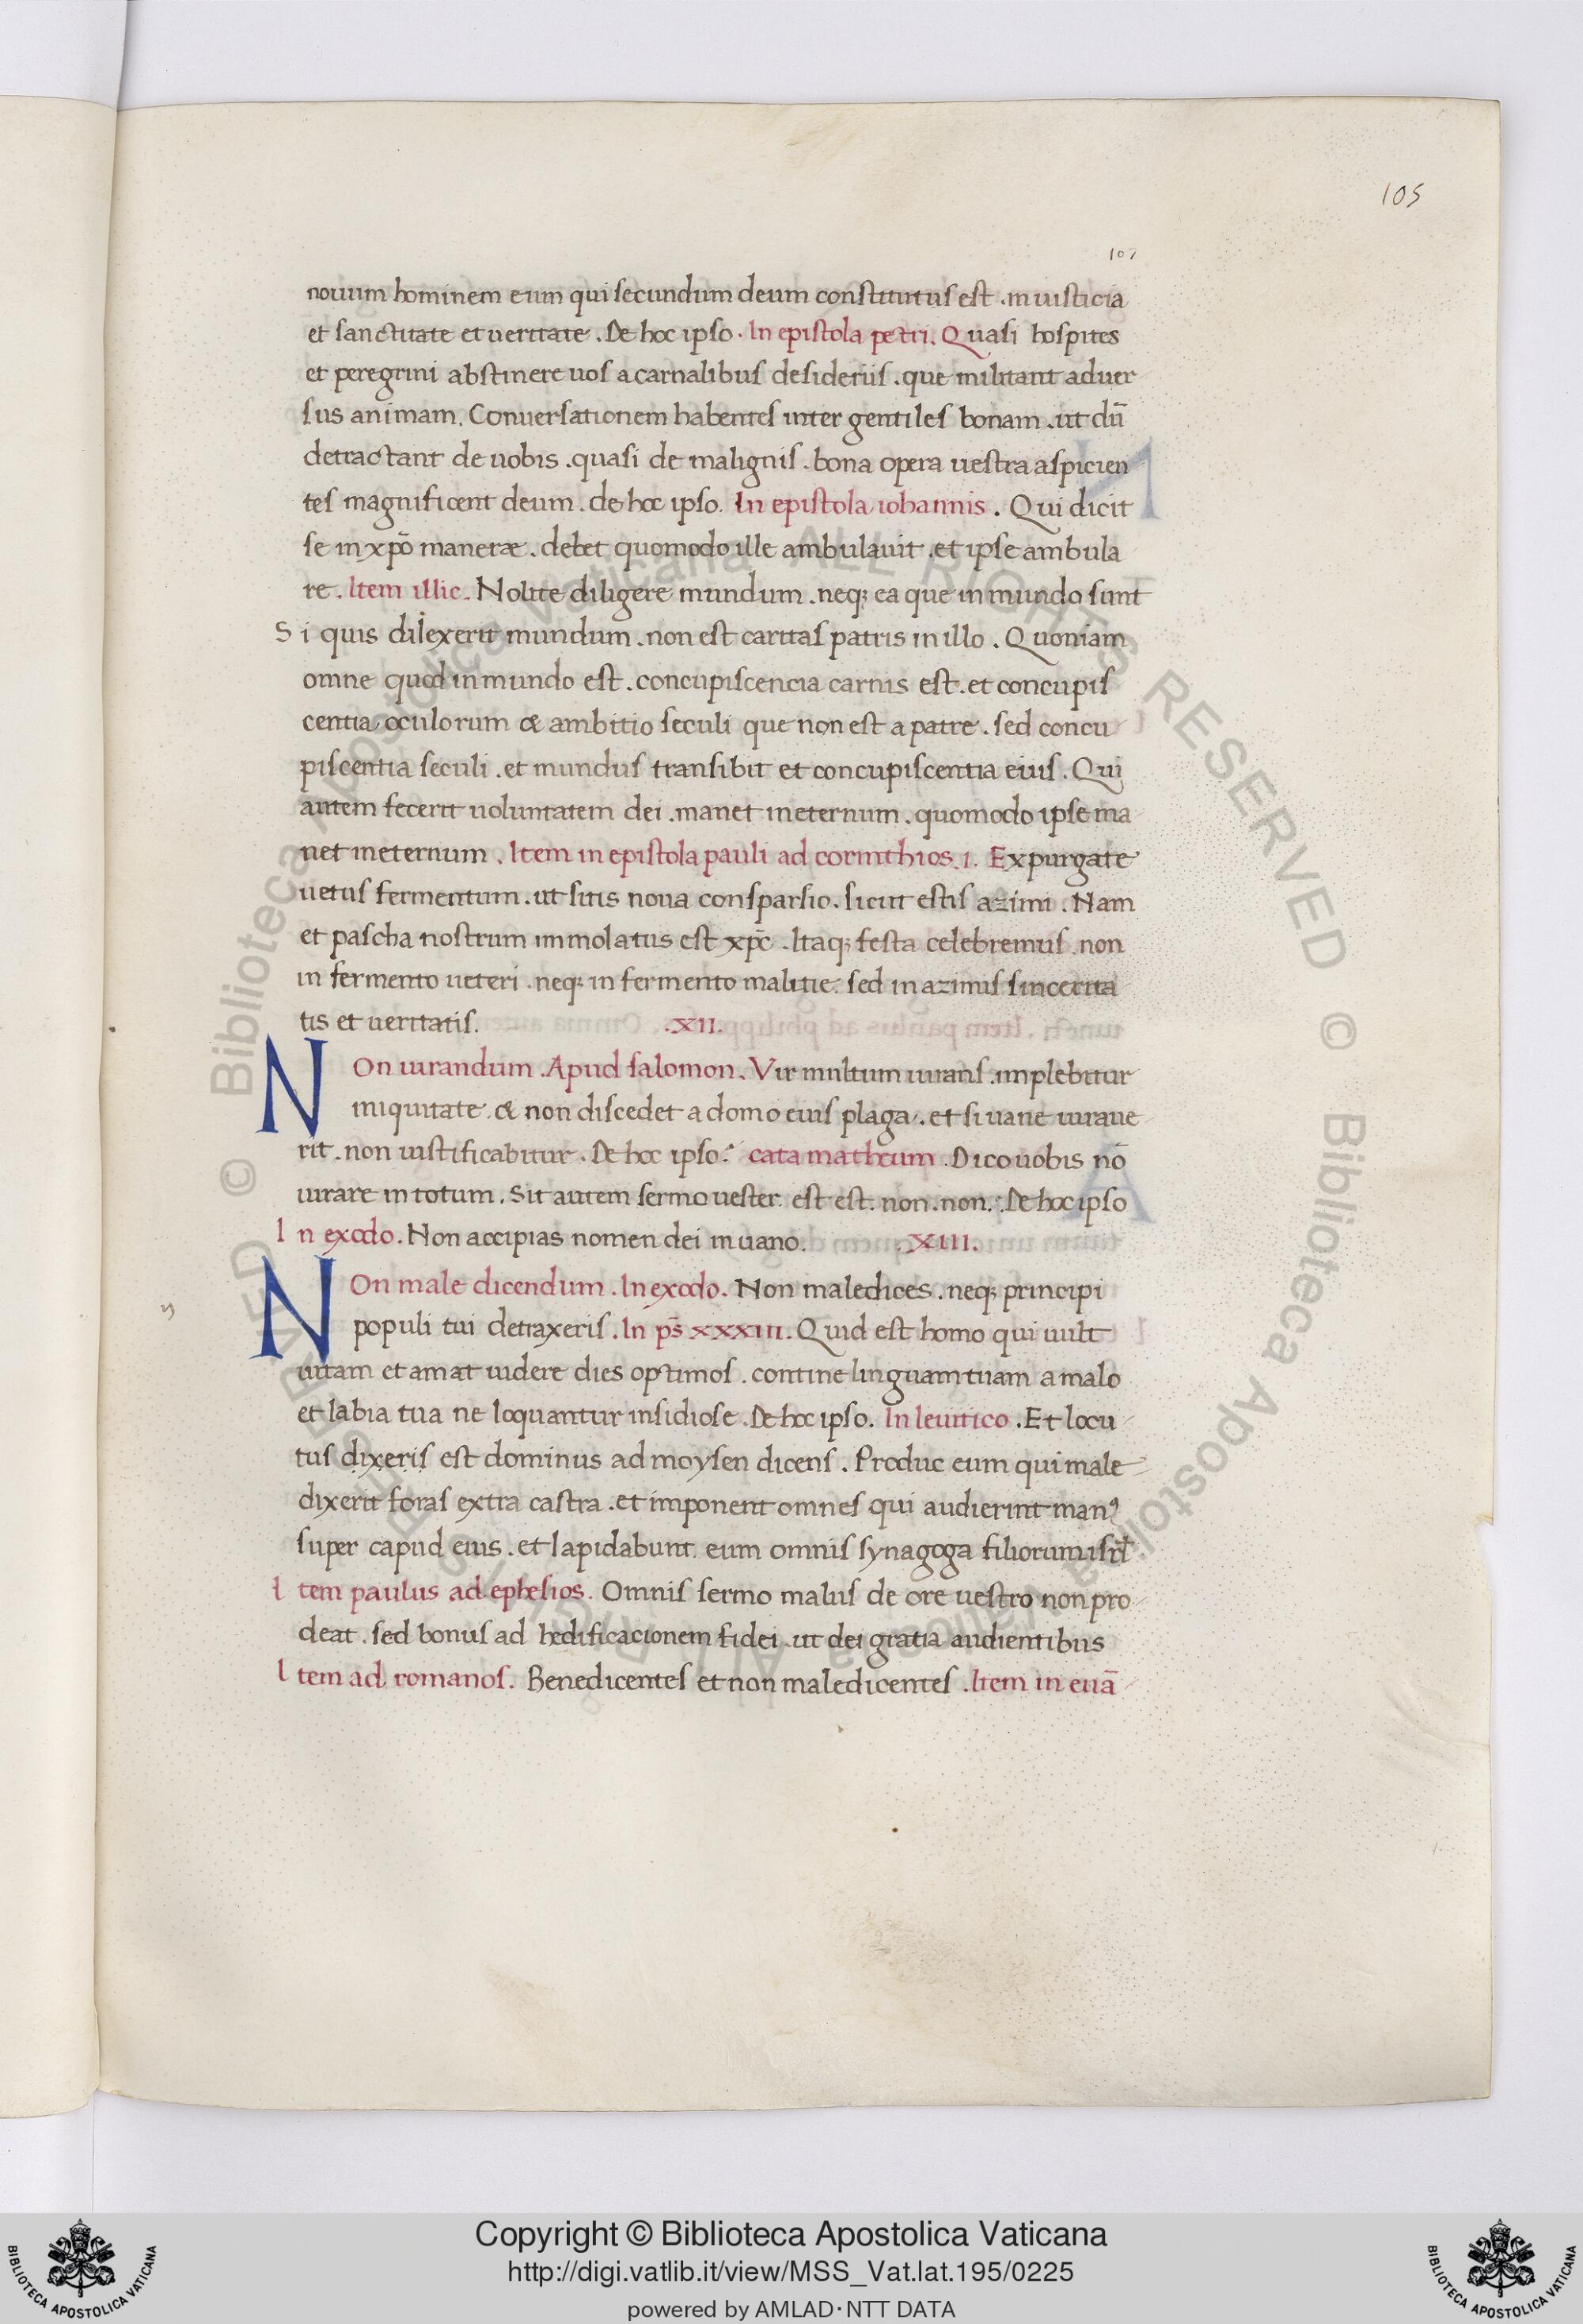 105
107
nouum hominem eum qui secundum deum constitutus est . in iusticia
et sanctitate et ueritate . De hoc ipso . In epistola petri . Quasi hospites
et peregrini abstinere uos a carnalibus desideriis . que militant aduer
sus animam . Conuersationem habentes inter gentiles bonam . ut dū
detractant de uobis . quasi de malignis . bona opera uestra aspicien
tes magnificent deum . de hoc ipso . In epistola iohannis . Qui dicit
se in xp̄o maneræ . debet quomodo ille ambulauit . et ipse ambula
re . Item illic . Nolite diligere mundum . neq; ea que in mundo sunt
Si quis dilexerit mundum . non est caritas patris in illo . Quoniam
omne quod in mundo est . concupiscencia carnis est . et concupis
centia oculorum & ambitio seculi que non est a patre . sed concu
piscentia seculi . et mundus transibit et concupiscentia eius . Qui
autem fecerit uoluntatem dei . manet ineternum . quomodo ipse ma
net ineternum . Item in epistola pauli ad corinthios . i . Expurgate
uetus fermentum . ut sitis noua consparsio . sicut estis azimi . Nam
et pascha nostrum immolatus est xp̄c . Itaq; festa celebremus . non
in fermento ueteri . neq; in fermento malitie . sed in azimis sincerita
tis et ueritatis . .XII.
NOn iurandum . Apud salomon . Vir multum iurans . implebitur
iniquitate . & non discedet a domo eius plaga . et si uane iuraue
rit . non iustificabitur . De hoc ipso : cata matheum . Dico uobis nō
iurare in totum . Sit autem sermo uester . est est . non . non . : De hoc ipso
In exodo . Non accipias nomen dei in uano . .XIII.
NOn male dicendum . In exodo . Non maledices . neq; principi
populi tui detraxeris . In ps̄ xxxiii . Quid est homo qui uult
uitam et amat uidere dies optimos . contine linguam tuam a malo
et labia tua ne loquantur insidiose . De hoc ipso . In leuitico . Et locu
tus dixeris est dominus ad moysen dicens . Produc eum qui male
dixerit foras extra castra . et imponent omnes qui audierint manꝰ
super capud eius . et lapidabunt eum omnis synagoga filiorum isrl̄
Item paulus ad ephesios . Omnis sermo malus de ore uestro non pro
deat . sed bonus ad hedificacionem fidei . ut dei gratia audientibus
Item ad romanos . Benedicentes et non maledicentes . Item in euā
© Biblioteca Apostolica Vaticana ALL RIGHTS RESERVED © Biblioteca Apostolica Vaticana ALL RIGHTS RESERVED
Copyright © Biblioteca Apostolica Vaticana
http://digi.vatlib.it/view/MSS_Vat.lat.195/0225
powered by AMLAD·NTT DATA
BIBLIOTECA APOSTOLICA VATICANA
BIBLIOTECA APOSTOLICA VATICANA